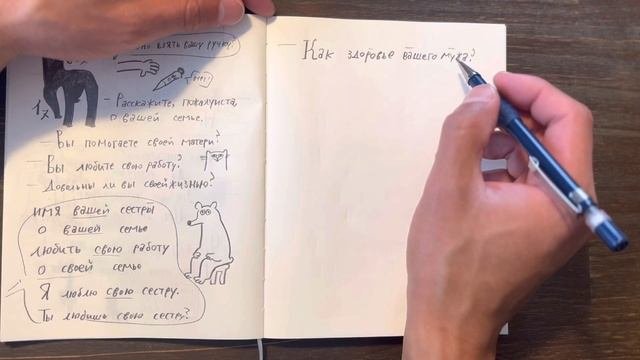 но взять вашу ручку?
Нет!
1я
- Расскажите, пожалуйста,
о вашей семье.
- Вы помогаете своей матери?
- Вы любите свою работу?
- Довольны ли вы своей жизнью?
имя вашей сестры
о вашей семье
любить свою работу
о своей семье
Я люблю свою сестру.
Ты любишь свою сестру?
- Как здоровье вашего мужа?